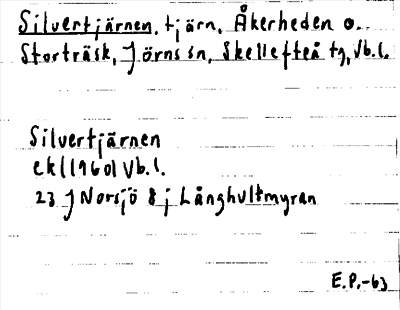 Silvertjärnen, tjärn, Åkerheden o.
Storträsk, Jörns sn, Skellefteå tg, Vb.l.
Silvertjärnen
ekl (1960) Vb.l.
23 J Norsjö 8 j Långhultmyran
E.P.-63